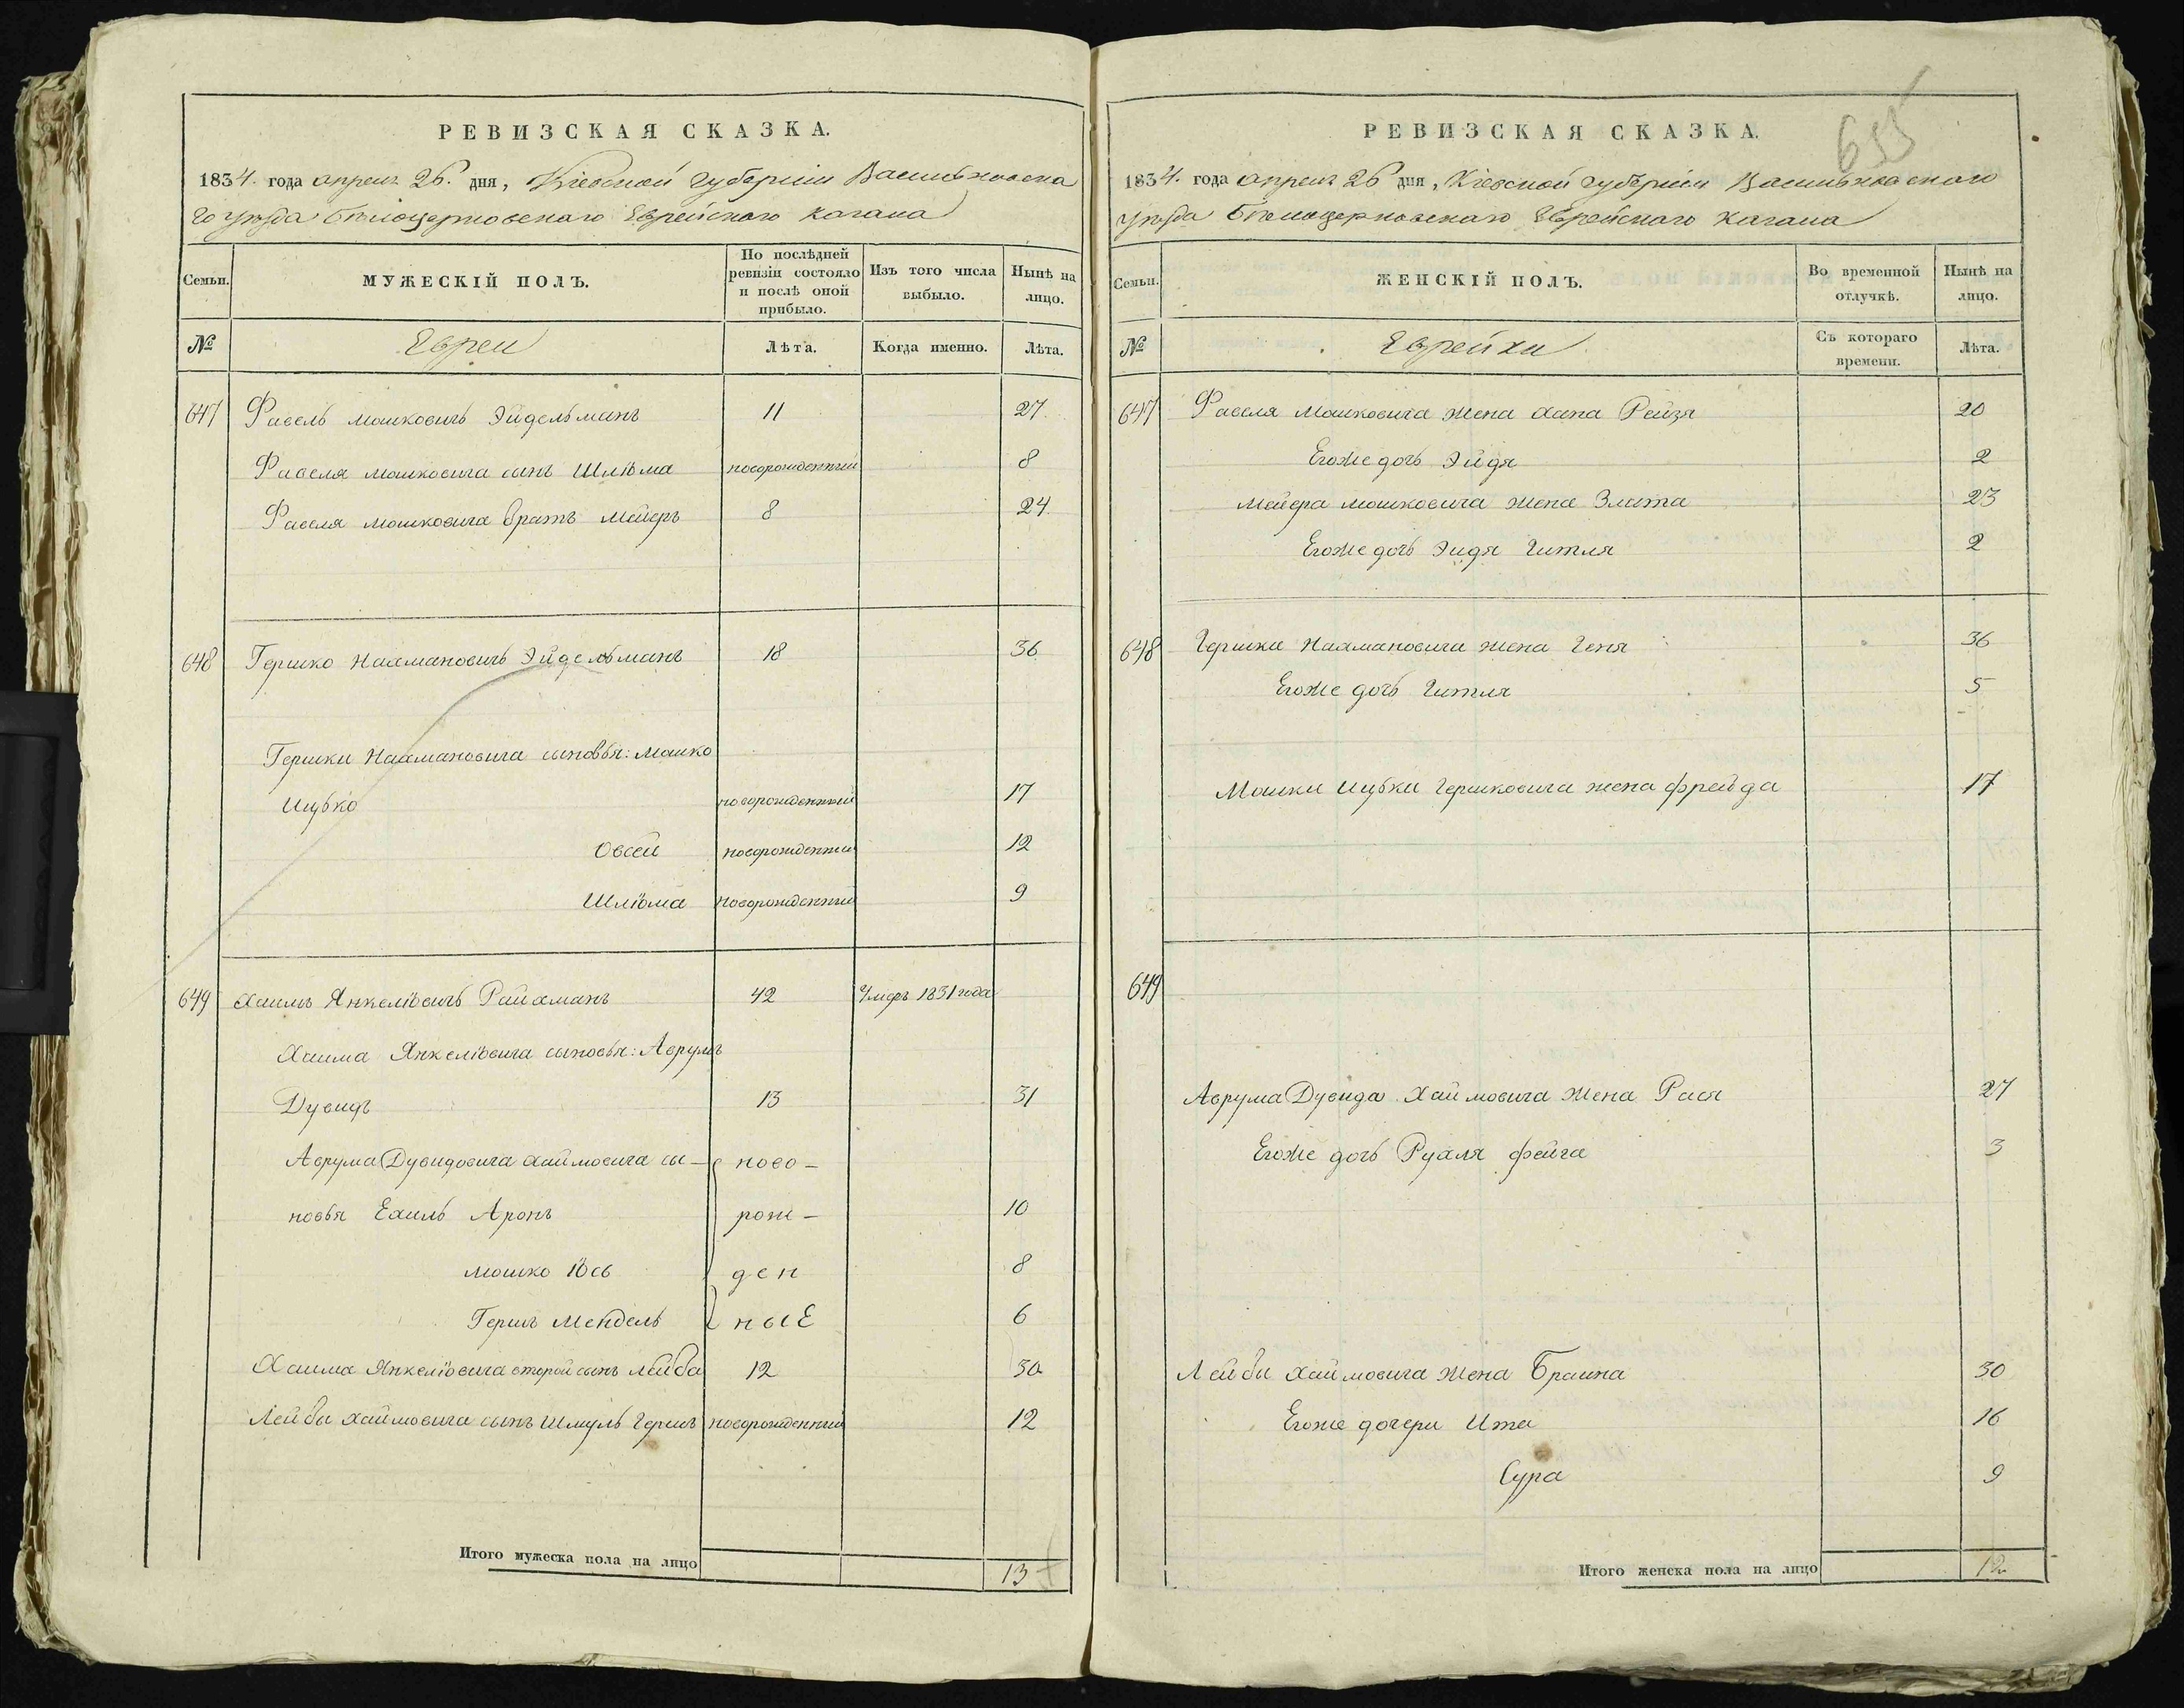 РЕВИЗСКАЯ СКАЗКА.
1834. года апреля 26. дня, Кіевской губерніи Васильковска
го уѣзда Бѣлоцерковскаго Еврейскаго Кагала
Семьи.
МУЖЕСКІЙ ПОЛЪ.
По послѣдней ревизіи состояло и послѣ оной прибыло.
Изъ того числа выбыло.
Нынѣ на лицо.
№
Евреи
Лѣта.
Когда именно.
Лѣта.
647 Фавель Мошковичь Эйдельманъ 11 27.
Фавеля Мошковича сынъ Шліома новорожденный 8
Фавеля Мошковича братъ Мейеръ 8 24.
648 Гершко Нахмановичь Эйдельманъ 18 36
Гершки Нахмановича сыновья: Мошко
Ицько новорожденный 17
Овсей новорожденный 12
Шліома новорожденный 9
649 Хаимъ Янкеліовичь Райхманъ 42 Умеръ 1831 года
Хаима Янкеліовича сыновья: Аврумъ
Дувидъ 13 31
Аврума Дувидовича Хаймовича сы- ново-
новья Ехиль Аронъ рож- 10
Мошко Іось ден 8
Гершъ Мендель ные 6
Хаима Янкеліовича второй сынъ Лейба 12 30
Лейбы Хаймовича сынъ Шмуль Гершъ новорожденный 12
Итого мужеска пола на лицо 13
655
РЕВИЗСКАЯ СКАЗКА.
1834. года апреля 26 дня, Кіевской губерніи Васильковскаго
уѣзда Бѣлоцерковскаго Еврейскаго Кагала
Семьи.
ЖЕНСКІЙ ПОЛЪ.
Во временной отлучкѣ.
Нынѣ на лицо.
№
Еврейки
Съ котораго времени.
Лѣта.
647 Фавеля Мошковича жена Хана Рейзя 20
Егоже дочь Эйдя 2
Мейера Мошковича жена Злата 23
Егоже дочь Эидя Гитля 2
648 Гершки Нахмановича жена Геня 36
Егоже дочь Гитля 5
Мошки Ицьки Гершковича жена Фрейда 17
649
Аврума Дувида Хаймовича жена Рася 27
Егоже дочь Рухля Фейга 3
Лейбы Хаймовича жена Браина 30
Егоже дочери Ита 16
Сура 9
Итого женска пола на лицо 12